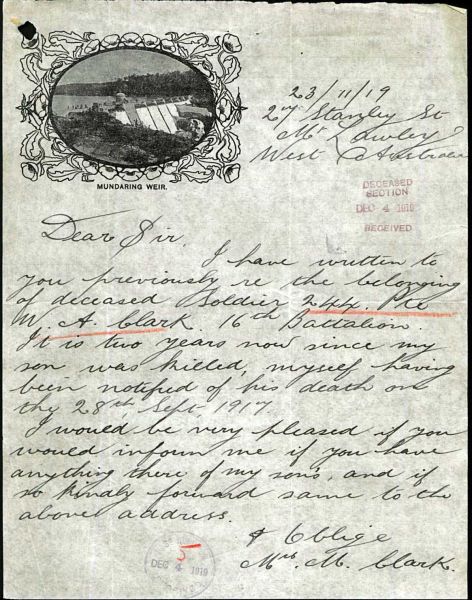 MUNDARING WEIR.
23/11/19
27 Stanley St
Mt Lawley
West Australia
DECEASED
SECTION
DEC 4 1919
RECEIVED
Dear Sir.
I have written to
you previously re the belonging
of deceased Soldier 244. Pte
W. A. Clark. 16th Battalion.
It is two years now since my
son was killed, myself having
been notified of his death on
the 28th Sept. 1917.
I would be very pleased if you
would inform me if you have
anything there of my son's, and if
so kindly forward same to the
above address.
& Oblige
Mrs. M. Clark.
5
DEC 4 1919